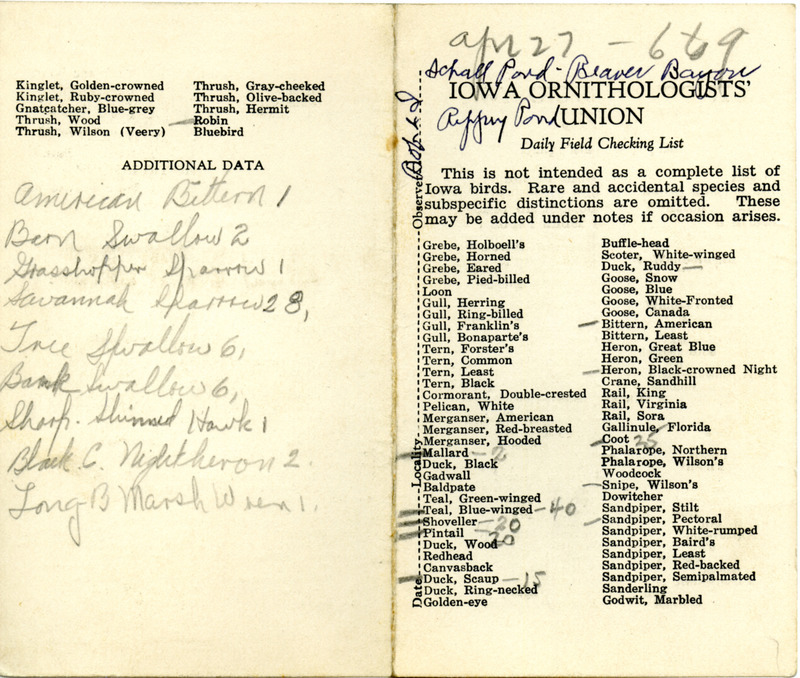 Kinglet, Golden-crowned
Kinglet, Ruby-crowned
Gnatcatcher, Blue-grey
Thrush, Wood
Thrush, Wilson (Veery)
Thrush, Gray-cheeked
Thrush, Olive-backed
Thrush, Hermit
Robin
Bluebird
ADDITIONAL DATA
American Bittern 1
Barn Swallow 2
Grasshopper Sparrow 1
Savannah Sparrow 2 3,
Tree Swallow 6,
Bank Swallow 6,
Sharp-Shinned Hawk 1
Black C. Nightheron 2.
Long B Marsh Wren 1.
Apr 27 - 6 to 9
Schall Pond - Beaver Bayou
IOWA ORNITHOLOGISTS'
Rippey Pond
UNION
Daily Field Checking List
This is not intended as a complete list of
Iowa birds. Rare and accidental species and
subspecific distinctions are omitted. These
may be added under notes if occasion arises.
Date
Locality
Observer
Grebe, Holboell's
Grebe, Horned
Grebe, Eared
Grebe, Pied-billed
Loon
Gull, Herring
Gull, Ring-billed
Gull, Franklin's
Gull, Bonaparte's
Tern, Forster's
Tern, Common
Tern, Least
Tern, Black
Cormorant, Double-crested
Pelican, White
Merganser, American
Merganser, Red-breasted
Merganser, Hooded
Mallard - 2
Duck, Black
Gadwall
Baldpate
Teal, Green-winged
Teal, Blue-winged - 40
Shoveller - 20
Pintail - 20
Duck, Wood
Redhead
Canvasback
Duck, Scaup - 15
Duck, Ring-necked
Golden-eye
Buffle-head
Scoter, White-winged
Duck, Ruddy -
Goose, Snow
Goose, Blue
Goose, White-Fronted
Goose, Canada
Bittern, American
Bittern, Least
Heron, Great Blue
Heron, Green
Heron, Black-crowned Night
Crane, Sandhill
Rail, King
Rail, Virginia
Rail, Sora
Gallinule, Florida
Coot 25
Phalarope, Northern
Phalarope, Wilson's
Woodcock
Snipe, Wilson's
Dowitcher
Sandpiper, Stilt
Sandpiper, Pectoral
Sandpiper, White-rumped
Sandpiper, Baird's
Sandpiper, Least
Sandpiper, Red-backed
Sandpiper, Semipalmated
Sanderling
Godwit, Marbled